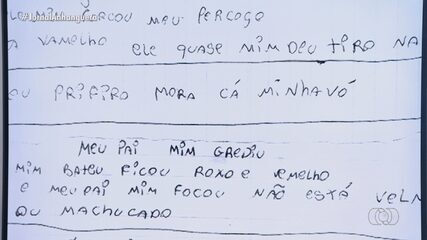 #JornalAnhanguera
FORCOU MEU PERCOÇO
A VAMELHO ELE QUASE MIM DEU TIRO NA
OU PRIFIRO MORA CÁ MINHA VÓ
MEU PAI MIM GREDIU
MIM BATEU FICOU ROXO E VEMELHO
E MEU PAI MIM FOCOU NÃO ESTÁ VELM
OU MACHUCADO